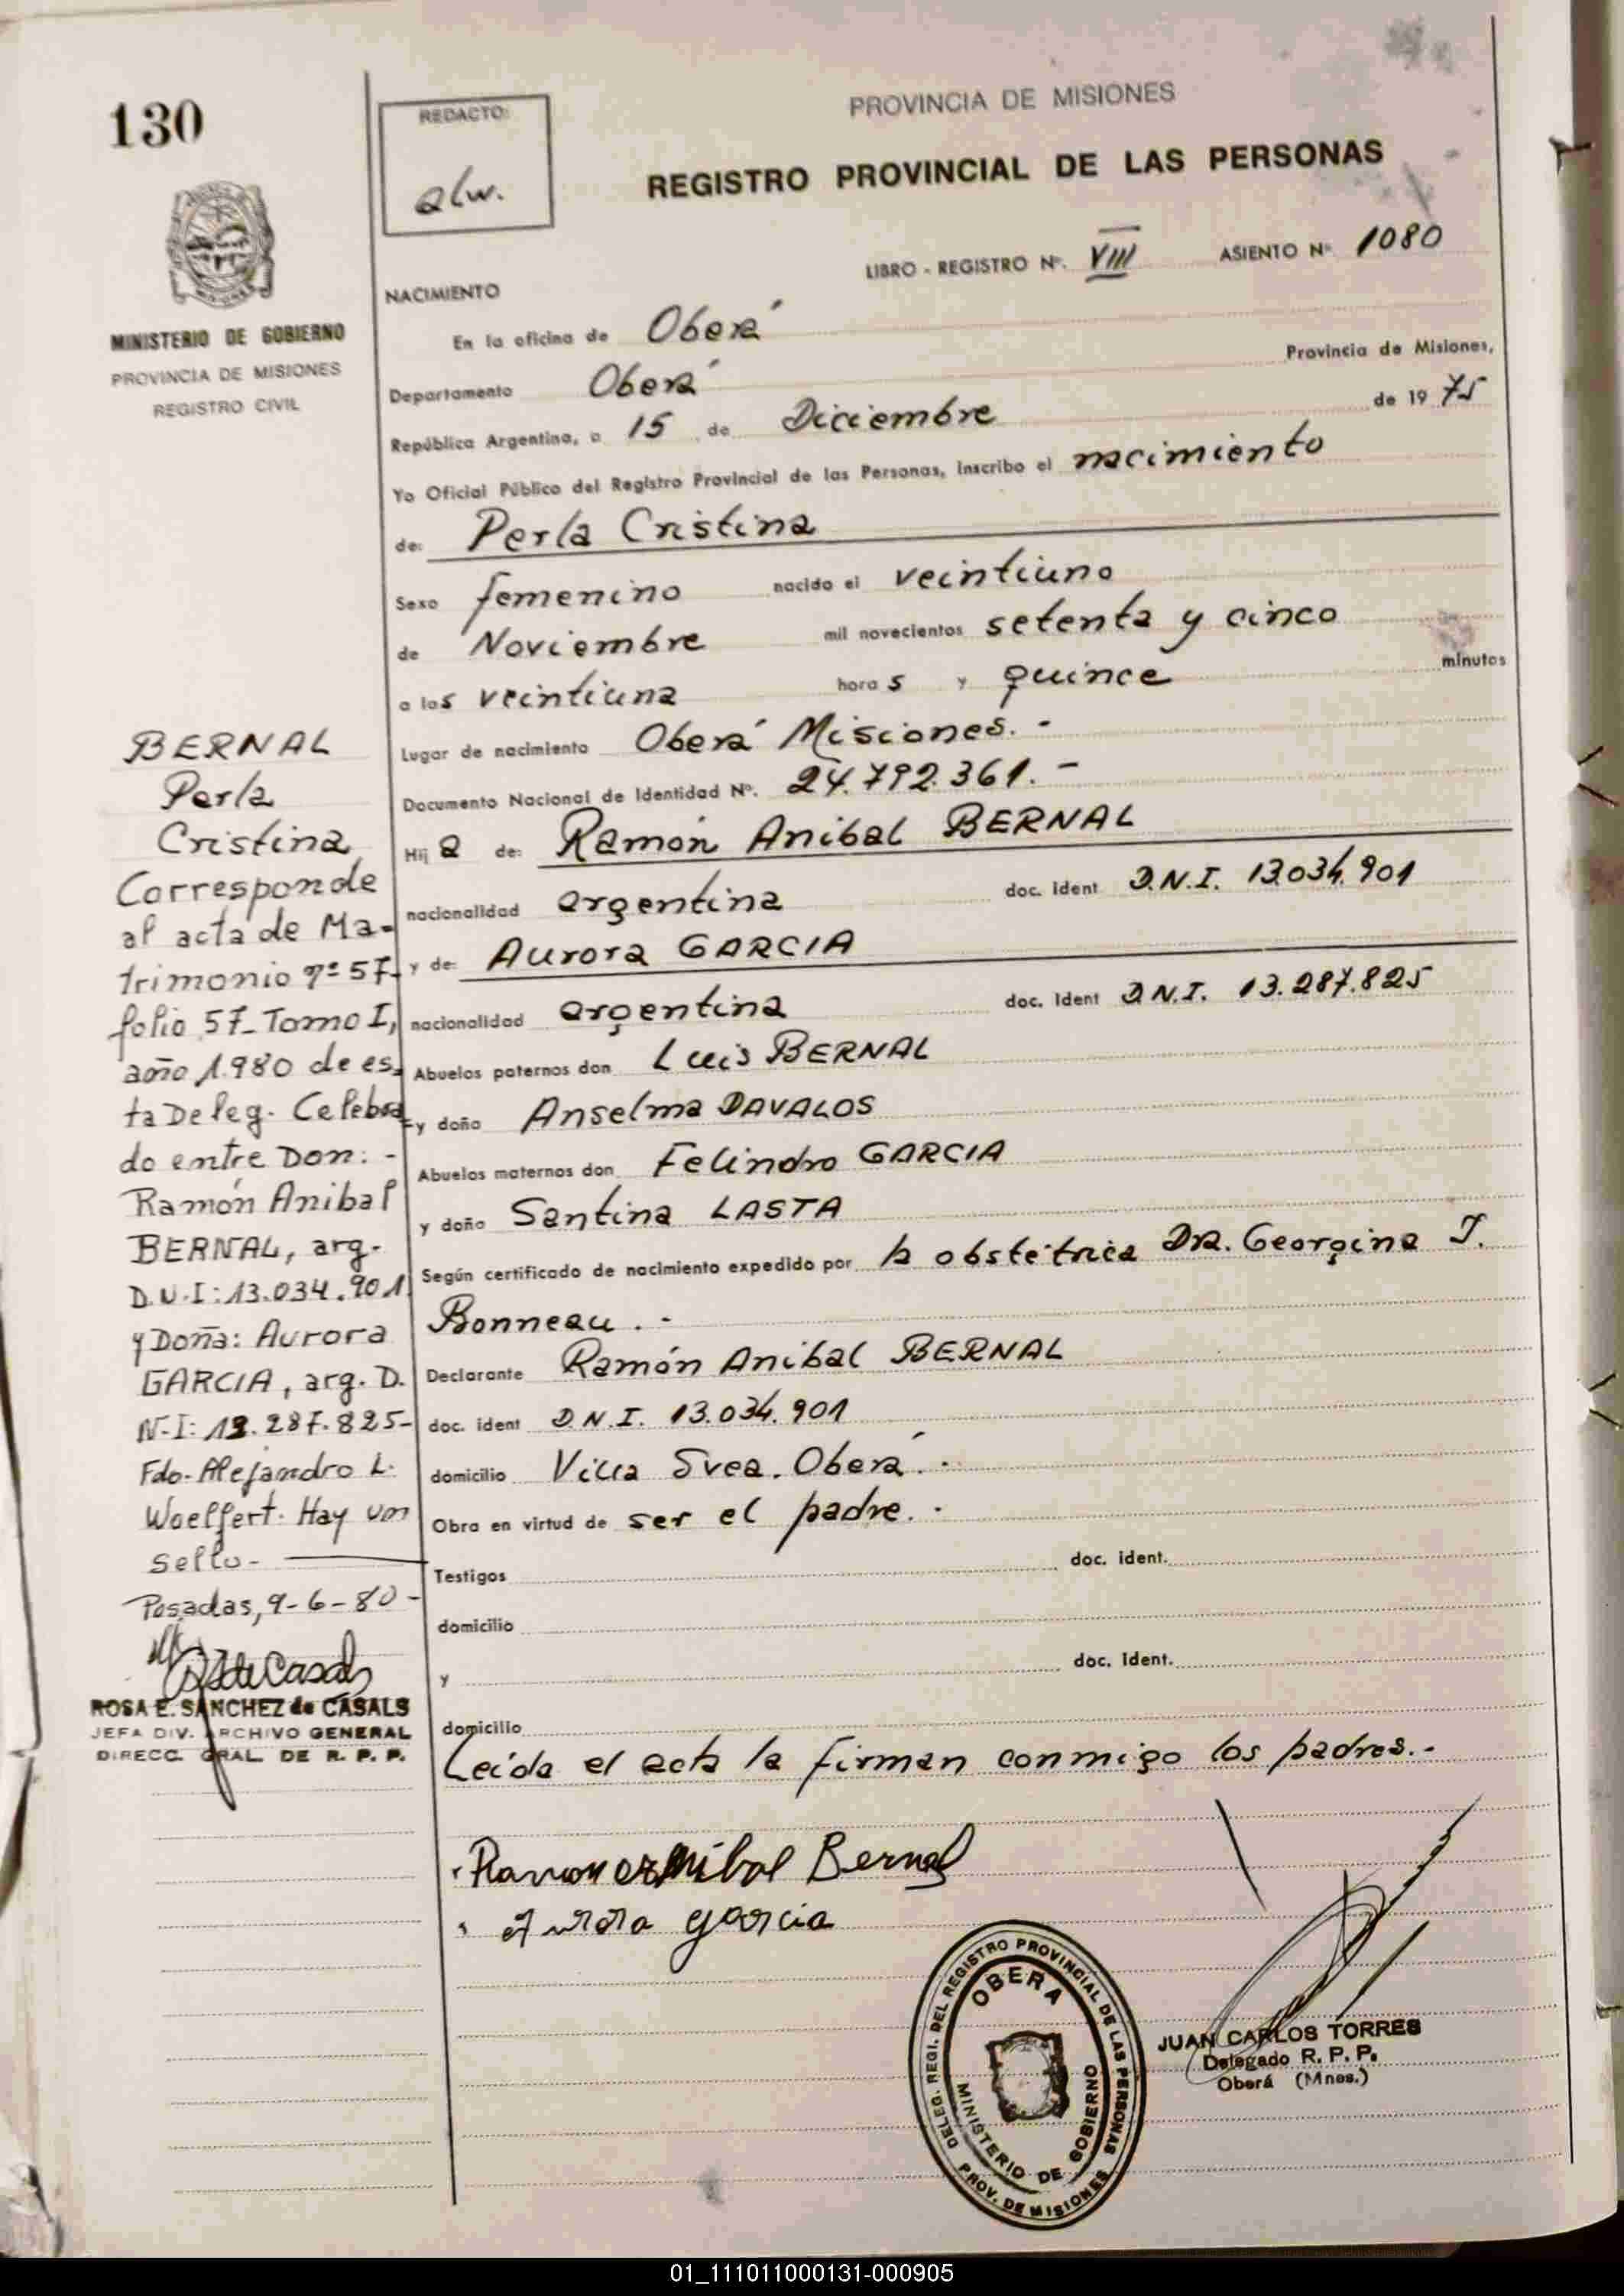 130
REDACTO:
alw.
PROVINCIA DE MISIONES
REGISTRO PROVINCIAL DE LAS PERSONAS
LIBRO - REGISTRO Nº. VIII ASIENTO Nº 1080
MISIONES
MINISTERIO DE GOBIERNO
PROVINCIA DE MISIONES
REGISTRO CIVIL
NACIMIENTO
En la oficina de Oberá
Departamento Oberá Provincia de Misiones,
República Argentina, a 15 de Diciembre de 1975
Yo Oficial Público del Registro Provincial de las Personas, inscribo el nacimiento
de: Perla Cristina
Sexo femenino nacido el veintiuno
de Noviembre mil novecientos setenta y cinco
a las veintiuna horas y quince minutos
Lugar de nacimiento Oberá Misiones.-
Documento Nacional de Identidad Nº. 24.792.361.-
Hija de: Ramón Anibal BERNAL
nacionalidad argentina doc. ident D.N.I. 13.034.901
y de: Aurora GARCIA
nacionalidad argentina doc. ident D.N.I. 13.287.825
Abuelos paternos don Luis BERNAL
y doña Anselma DAVALOS
Abuelos maternos don Felindro GARCIA
y doña Santina LASTA
Según certificado de nacimiento expedido por la obstétrica Dra. Georgina J.
Bonneau.-
Declarante Ramón Anibal BERNAL
doc. ident D.N.I. 13.034.901
domicilio Villa Svea. Oberá.-
Obra en virtud de ser el padre.-
Testigos doc. ident.
domicilio
y doc. ident.
domicilio
Leída el acta la firman conmigo los padres.-
Ramon Anibal Bernal
Aurora garcia
BERNAL
Perla
Cristina
Corresponde
al acta de Ma-
trimonio nº 57-
folio 57- Tomo I,
año 1.980 de es-
ta Deleg. Celebra-
do entre Don: -
Ramón Anibal
BERNAL, arg.
D.N.I: 13.034.901
y Doña: Aurora
GARCIA, arg. D.
N.I: 13.287.825-
Fdo- Alejandro L.
Woelfert. Hay un
sello-
Posadas, 9-6-80-
ROSA E. SANCHEZ de CASALS
JEFA DIV. ARCHIVO GENERAL
DIRECC. GRAL. DE R. P. P.
DELEG. REGI. DEL REGISTRO PROVINCIAL DE LAS PERSONAS
OBERA
MINISTERIO DE GOBIERNO
PROV. DE MISIONES
JUAN CARLOS TORRES
Delegado R. P. P.
Oberá (Mnes.)
01_111011000131-000905